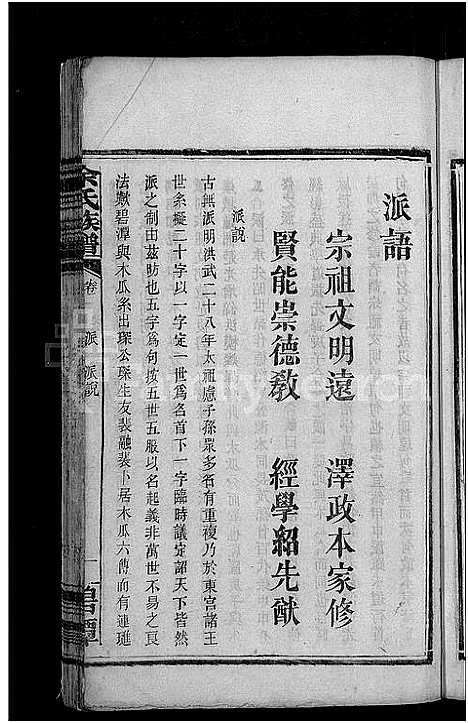 派語
宗祖文明遠 澤政本家修
賢能崇德敎 經學紹先猷
派說
古無派明洪武二十八年太祖慮子孫衆多名有重複乃於東宮諸王
世系擬二十字以一字定一世爲名首下一字臨時議定詔天下皆然
派之制由茲昉也五字爲句按五世五服以名起義非萬世不易之良
法歟碧潭與木瓜系出琛公琛生友裴融裴卜居木瓜六傳而有連璡
余氏族譜
卷
派 派說
一